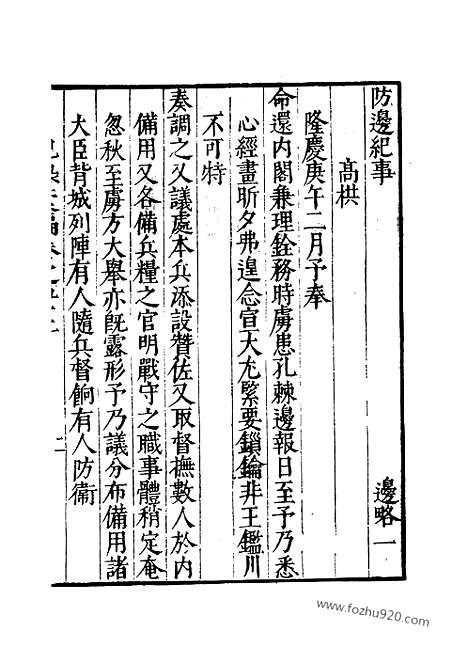 防邊紀事 邊略一
高栱
隆慶庚午二月予奉
命還内閣兼理銓務時虜患孔棘邊報日至予乃悉
心經畫昕夕弗遑念宣大尤緊要鎖鑰非王鑑川
不可特
奏調之又議處本兵添設贊佐又取督撫數人於内
備用又各備兵糧之官明戰守之職事體稍定奄
忽秋至虜方大舉亦旣露形予乃議分布備用諸
大臣背城列陣有人隨兵督餉有人防衛
二
www.fozhu920.com